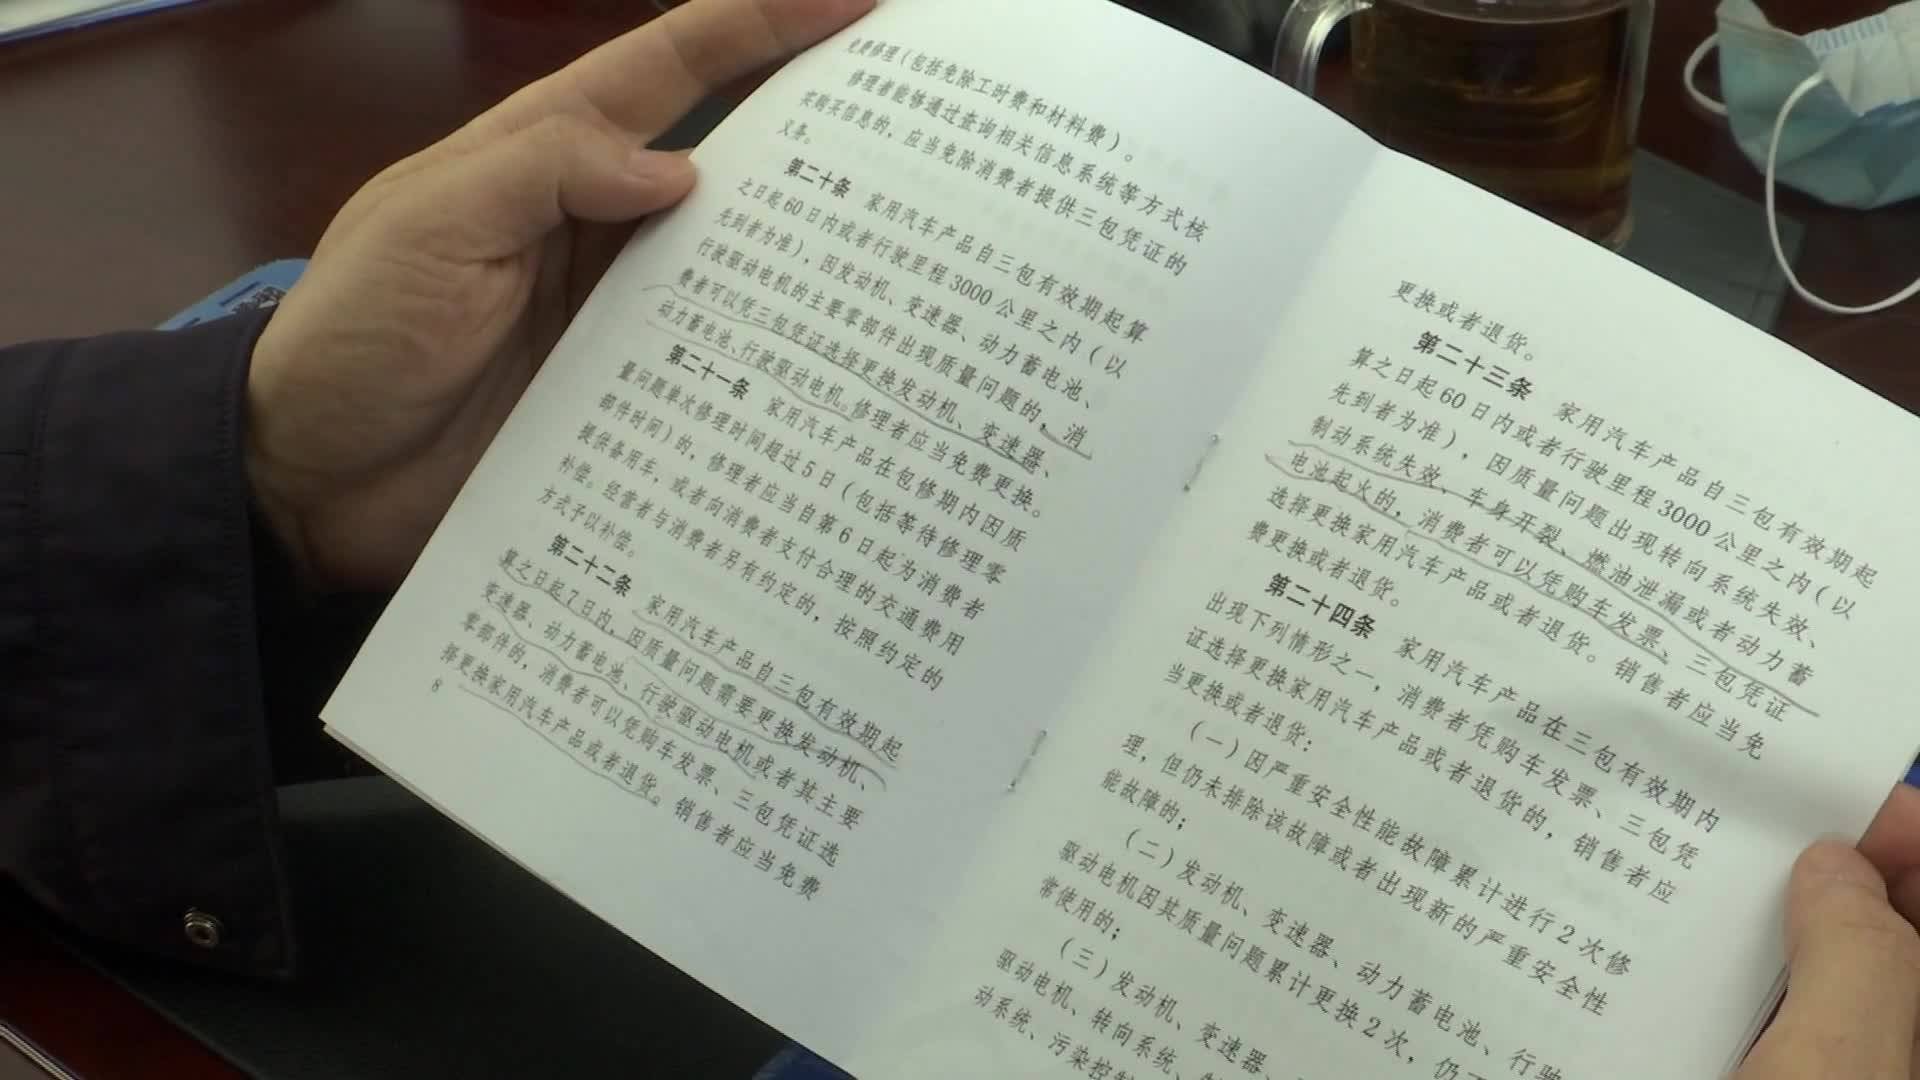 免费修理（包括免除工时费和材料费）。
修理者能够通过查询相关信息系统等方式核
实购买信息的，应当免除消费者提供三包凭证的
义务。
第二十条 家用汽车产品自三包有效期起算
之日起60日内或者行驶里程3000公里之内（以
先到者为准），因发动机、变速器、动力蓄电池、
行驶驱动电机的主要零部件出现质量问题的，消
费者可以凭三包凭证选择更换发动机、变速器、
动力蓄电池、行驶驱动电机。修理者应当免费更换。
第二十一条 家用汽车产品在包修期内因质
量问题单次修理时间超过5日（包括等待修理零
部件时间）的，修理者应当自第6日起为消费者
提供备用车，或者向消费者支付合理的交通费用
补偿。经营者与消费者另有约定的，按照约定的
方式予以补偿。
第二十二条 家用汽车产品自三包有效期起
算之日起7日内，因质量问题需要更换发动机、
变速器、动力蓄电池、行驶驱动电机或者其主要
零部件的，消费者可以凭购车发票、三包凭证选
择更换家用汽车产品或者退货。销售者应当免费
8
更换或者退货。
第二十三条 家用汽车产品自三包有效期起
算之日起60日内或者行驶里程3000公里之内（以
先到者为准），因质量问题出现转向系统失效、
制动系统失效、车身开裂、燃油泄漏或者动力蓄
电池起火的，消费者可以凭购车发票、三包凭证
选择更换家用汽车产品或者退货。销售者应当免
费更换或者退货。
第二十四条 家用汽车产品在三包有效期内
出现下列情形之一，消费者凭购车发票、三包凭
证选择更换家用汽车产品或者退货的，销售者应
当更换或者退货：
（一）因严重安全性能故障累计进行2次修
理，但仍未排除该故障或者出现新的严重安全性
能故障的；
（二）发动机、变速器、动力蓄电池、行驶
驱动电机因其质量问题累计更换2次，仍
常使用的；
（三）发动机、变速器、
驱动电机、转向系统、
动系统、污染控